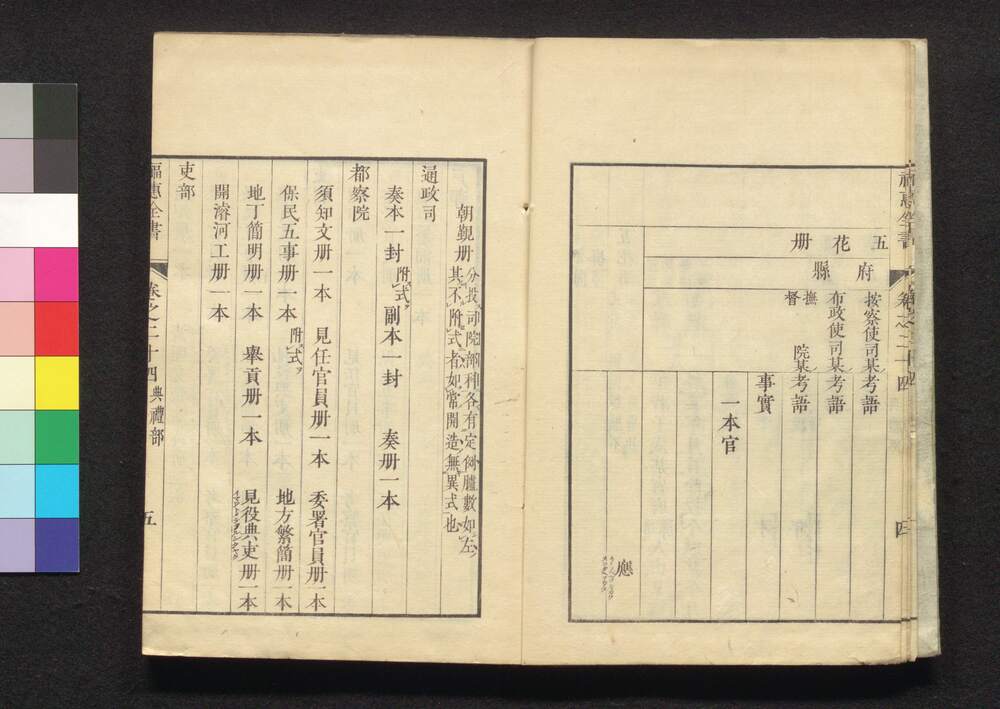 福惠全書
卷之二十四
四
五花册
府縣
按察使司某考語
布政使司某考語
撫督院某考語
事實
一本官
應
朝覲册
分投司院部科各有定例臚數如左
其不附式者如常開造無異式也
通政司
奏本一封附式 副本一封 奏册一本
都察院
須知文册一本 見任官員册一本 委署官員册一本
保民五事册一本附式 地方繁簡册一本
地丁簡明册一本 舉貢册一本 見役典吏册一本
開濬河工册一本
吏部
福惠全書
卷之二十四 典禮部
五